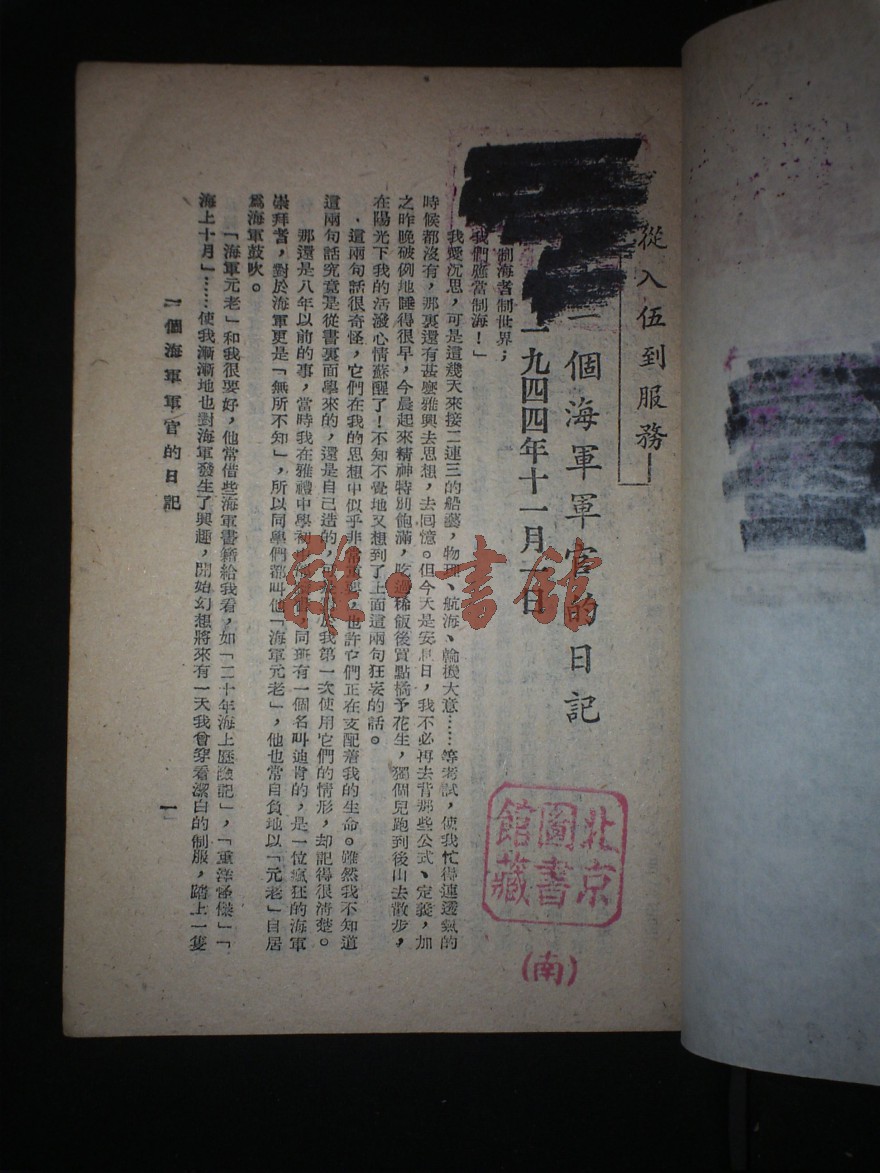 從入伍到服務—
一個海軍軍官的日記
一九四四年十一月一日
制海者制世界；
我們應當制海！」
我愛沉思，可是這幾天來接二連三的船藝，物理、航海、輪機大意……等考試，使我忙得連透氣的
時候都沒有，那裏還有甚麼雅興去思想，去回憶。但今天是安息日，我不必再去背那些公式、定義，加
之昨晚破例地睡得很早，今晨起來精神特別飽滿，吃過稀飯後買點橘子花生，獨個兒跑到後山去散步，
在陽光下我的活潑心情蘇醒了！不知不覺地又想到了上面這兩句狂妄的話。
這兩句話很奇怪，它們在我的思想中似乎非常重要，也許它們正在支配着我的生命。雖然我不知道
這兩句話究竟是從書裏面學來的，還是自己造的，我第一次使用它們的情形，却記得很清楚。
那還是八年以前的事，當時我在雅禮中學初，同班有一個名叫迪肯的，是一位瘋狂的海軍
崇拜者，對於海軍更是「無所不知」，所以同學們都叫他「海軍元老」，他也常自負地以「元老」自居
爲海軍鼓吹。
「海軍元老」和我很要好，他常借些海軍書籍給我看，如「二十年海上歷險記」，「重洋怪傑」「
海上十月」……使我漸漸地也對海軍發生了興趣，開始幻想將來有一天我會穿着潔白的制服，踏上一隻
一個海軍軍官的日記
一
北京
圖書
館藏
(南)
雜·書館